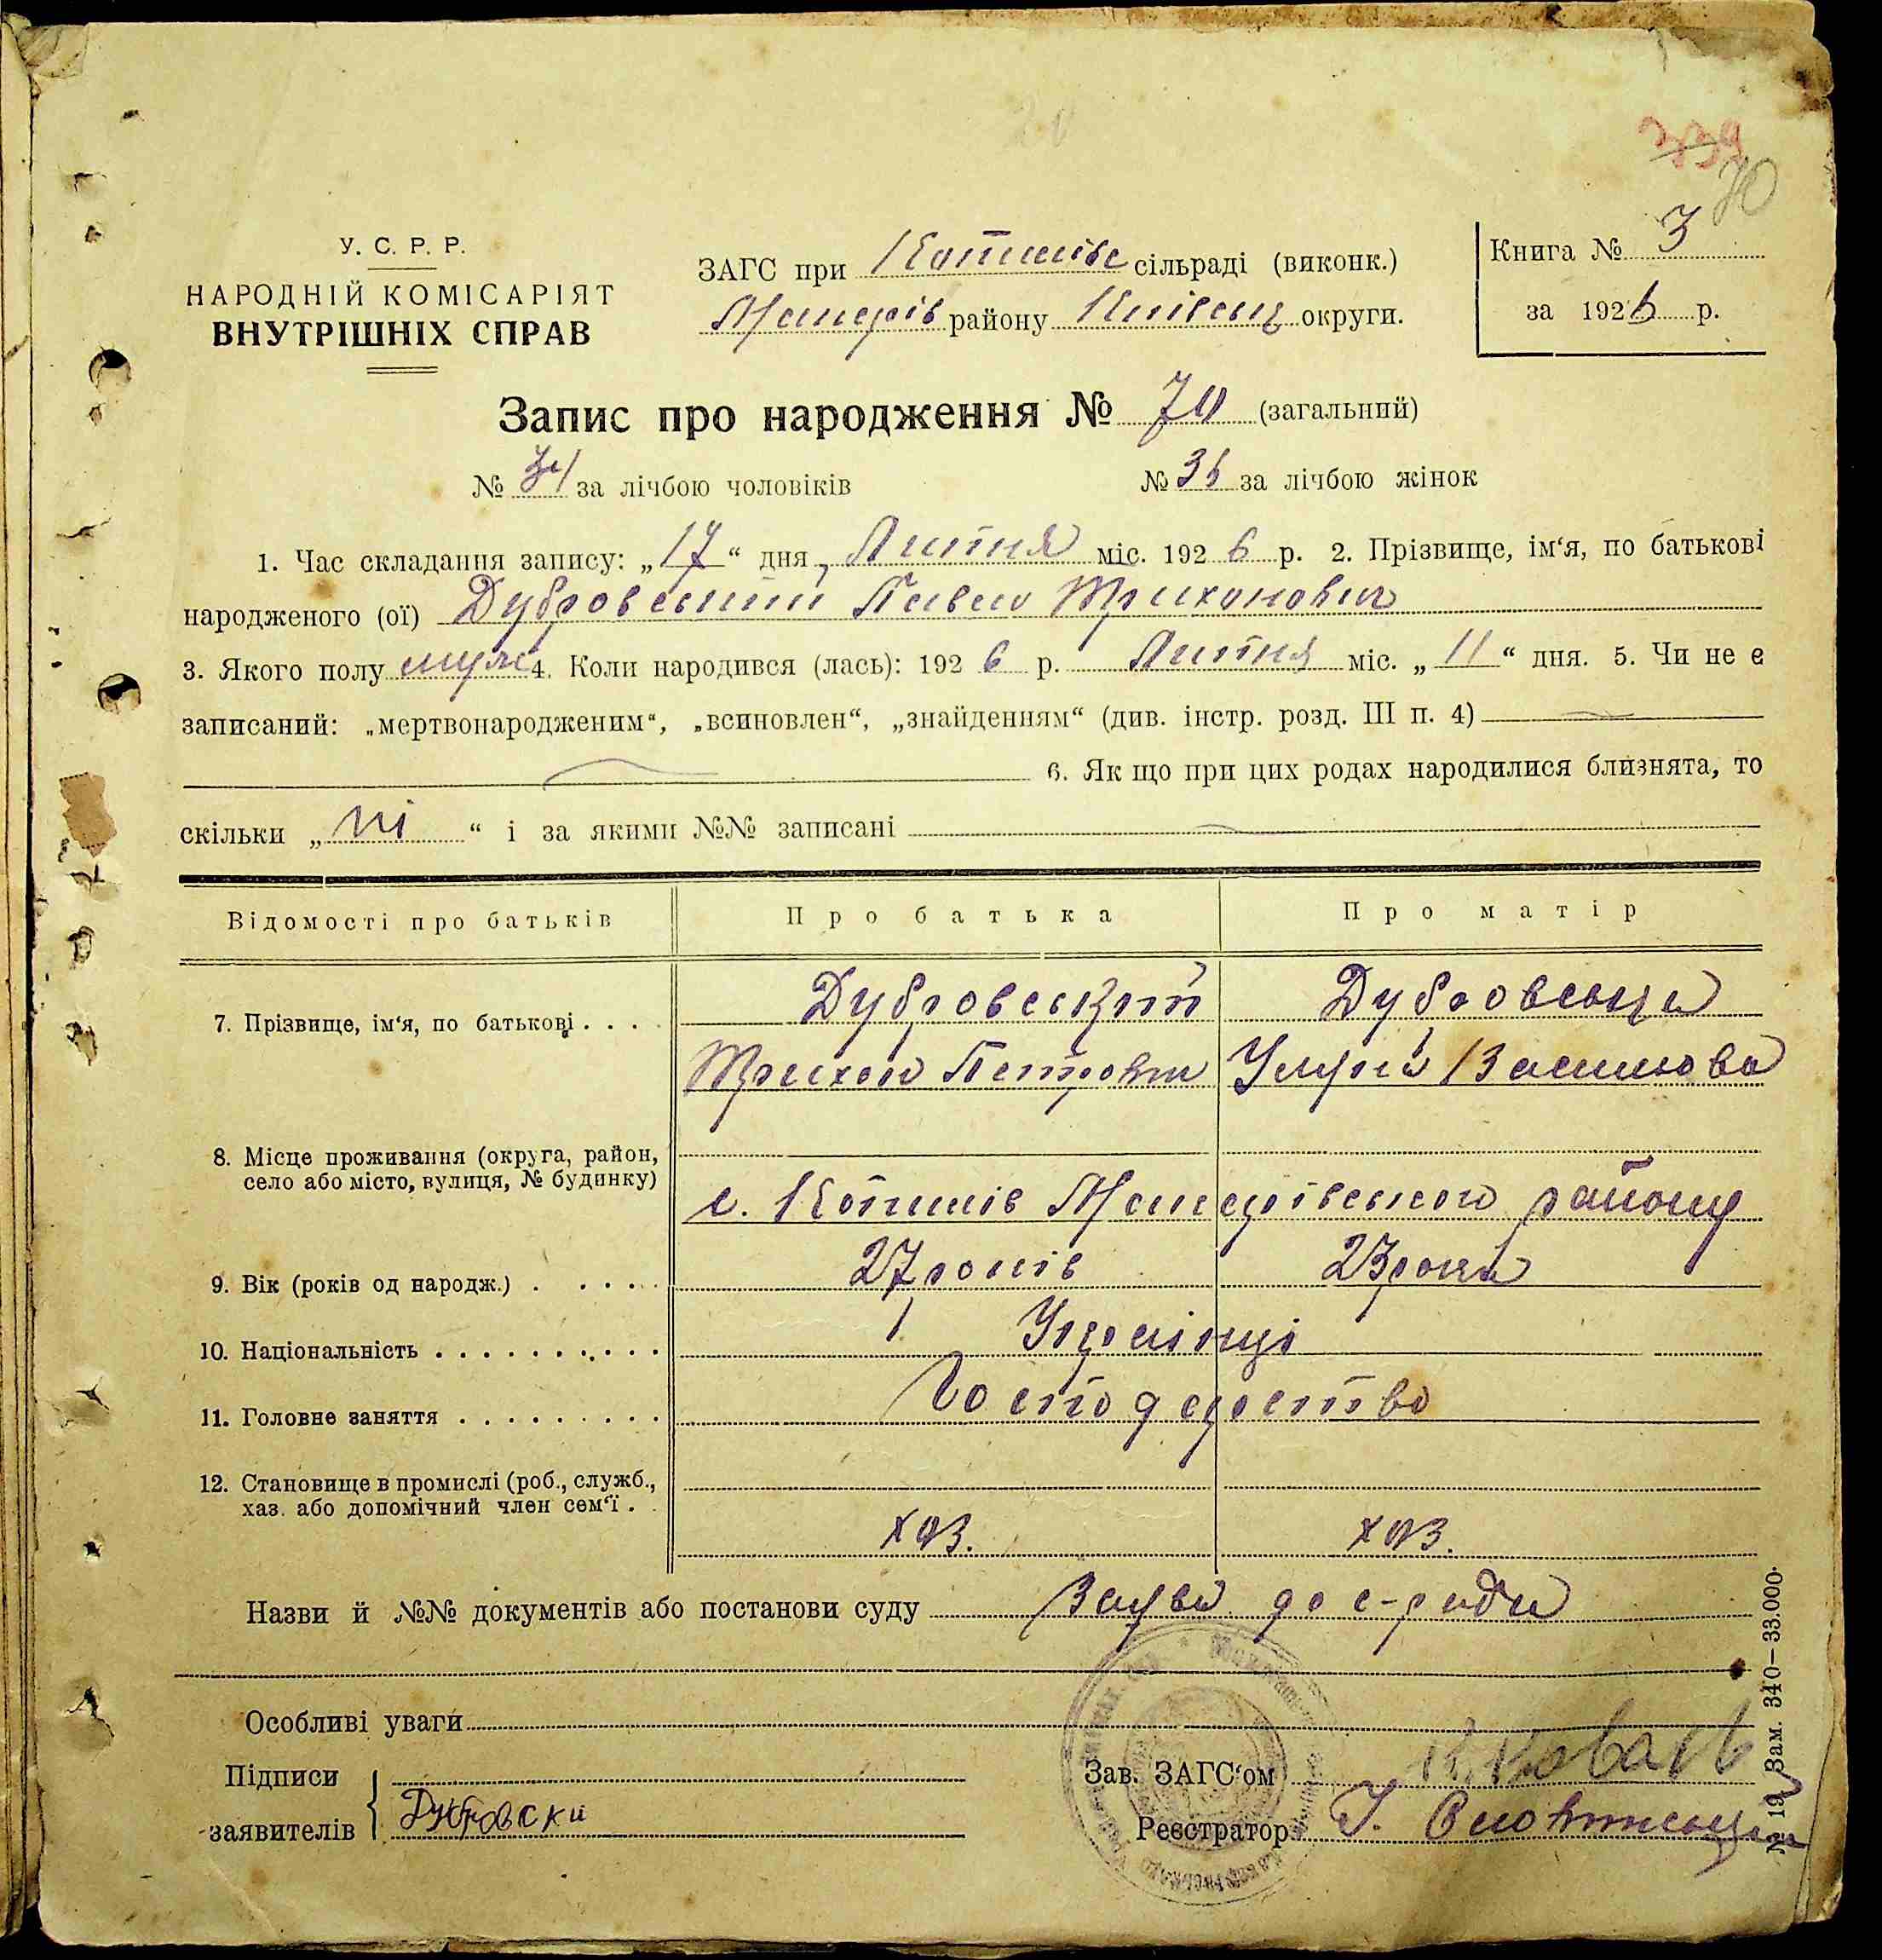 339
70
У. С. Р. Р.
НАРОДНІЙ КОМІСАРІЯТ
ВНУТРІШНІХ СПРАВ
ЗАГС при сільраді (виконк.)
Макарів району Київськ округи.
Книга № 3
за 1926 р.
Запис про народження № 70 (загальний)
№ 34 за лічбою чоловіків № 36 за лічбою жінок
1. Час складання запису: „17“ дня Липня міс. 1926 р. 2. Прізвище, ім‘я, по батькові
народженого (ої) Дубровський Павло Трихонович
3. Якого полу муж 4. Коли народився (лась): 1926 р. Липня міс. „11“ дня. 5. Чи не є
записаний: „мертвонародженим“, „всиновлен“, „знайденням“ (див. інстр. розд. III п. 4)
6. Як що при цих родах народилися близнята, то
скільки „ні“ і за якими №№ записані
Відомості про батьків Про батька Про матір
7. Прізвище, ім‘я, по батькові . . . . Дубровський Дубровська
Трихон Петрович Василова
8. Місце проживання (округа, район,
село або місто, вулиця, № будинку)
с. Макарівського району
9. Вік (років од народж.) . . . . . 27 років 23 роки
10. Національність . . . . . . . . . . Українці
11. Головне заняття . . . . . . . . . Господарство
12. Становище в промислі (роб., служб.,
хаз. або допомічний член сем‘ї . .
хаз. хаз.
Назви й №№ документів або постанови суду Заява до с-ради
Особливі уваги
Підписи
заявителів Дубровски
Зав. ЗАГС‘ом Коваль
Реєстратор
№ 19 Зам. 340—33.000.